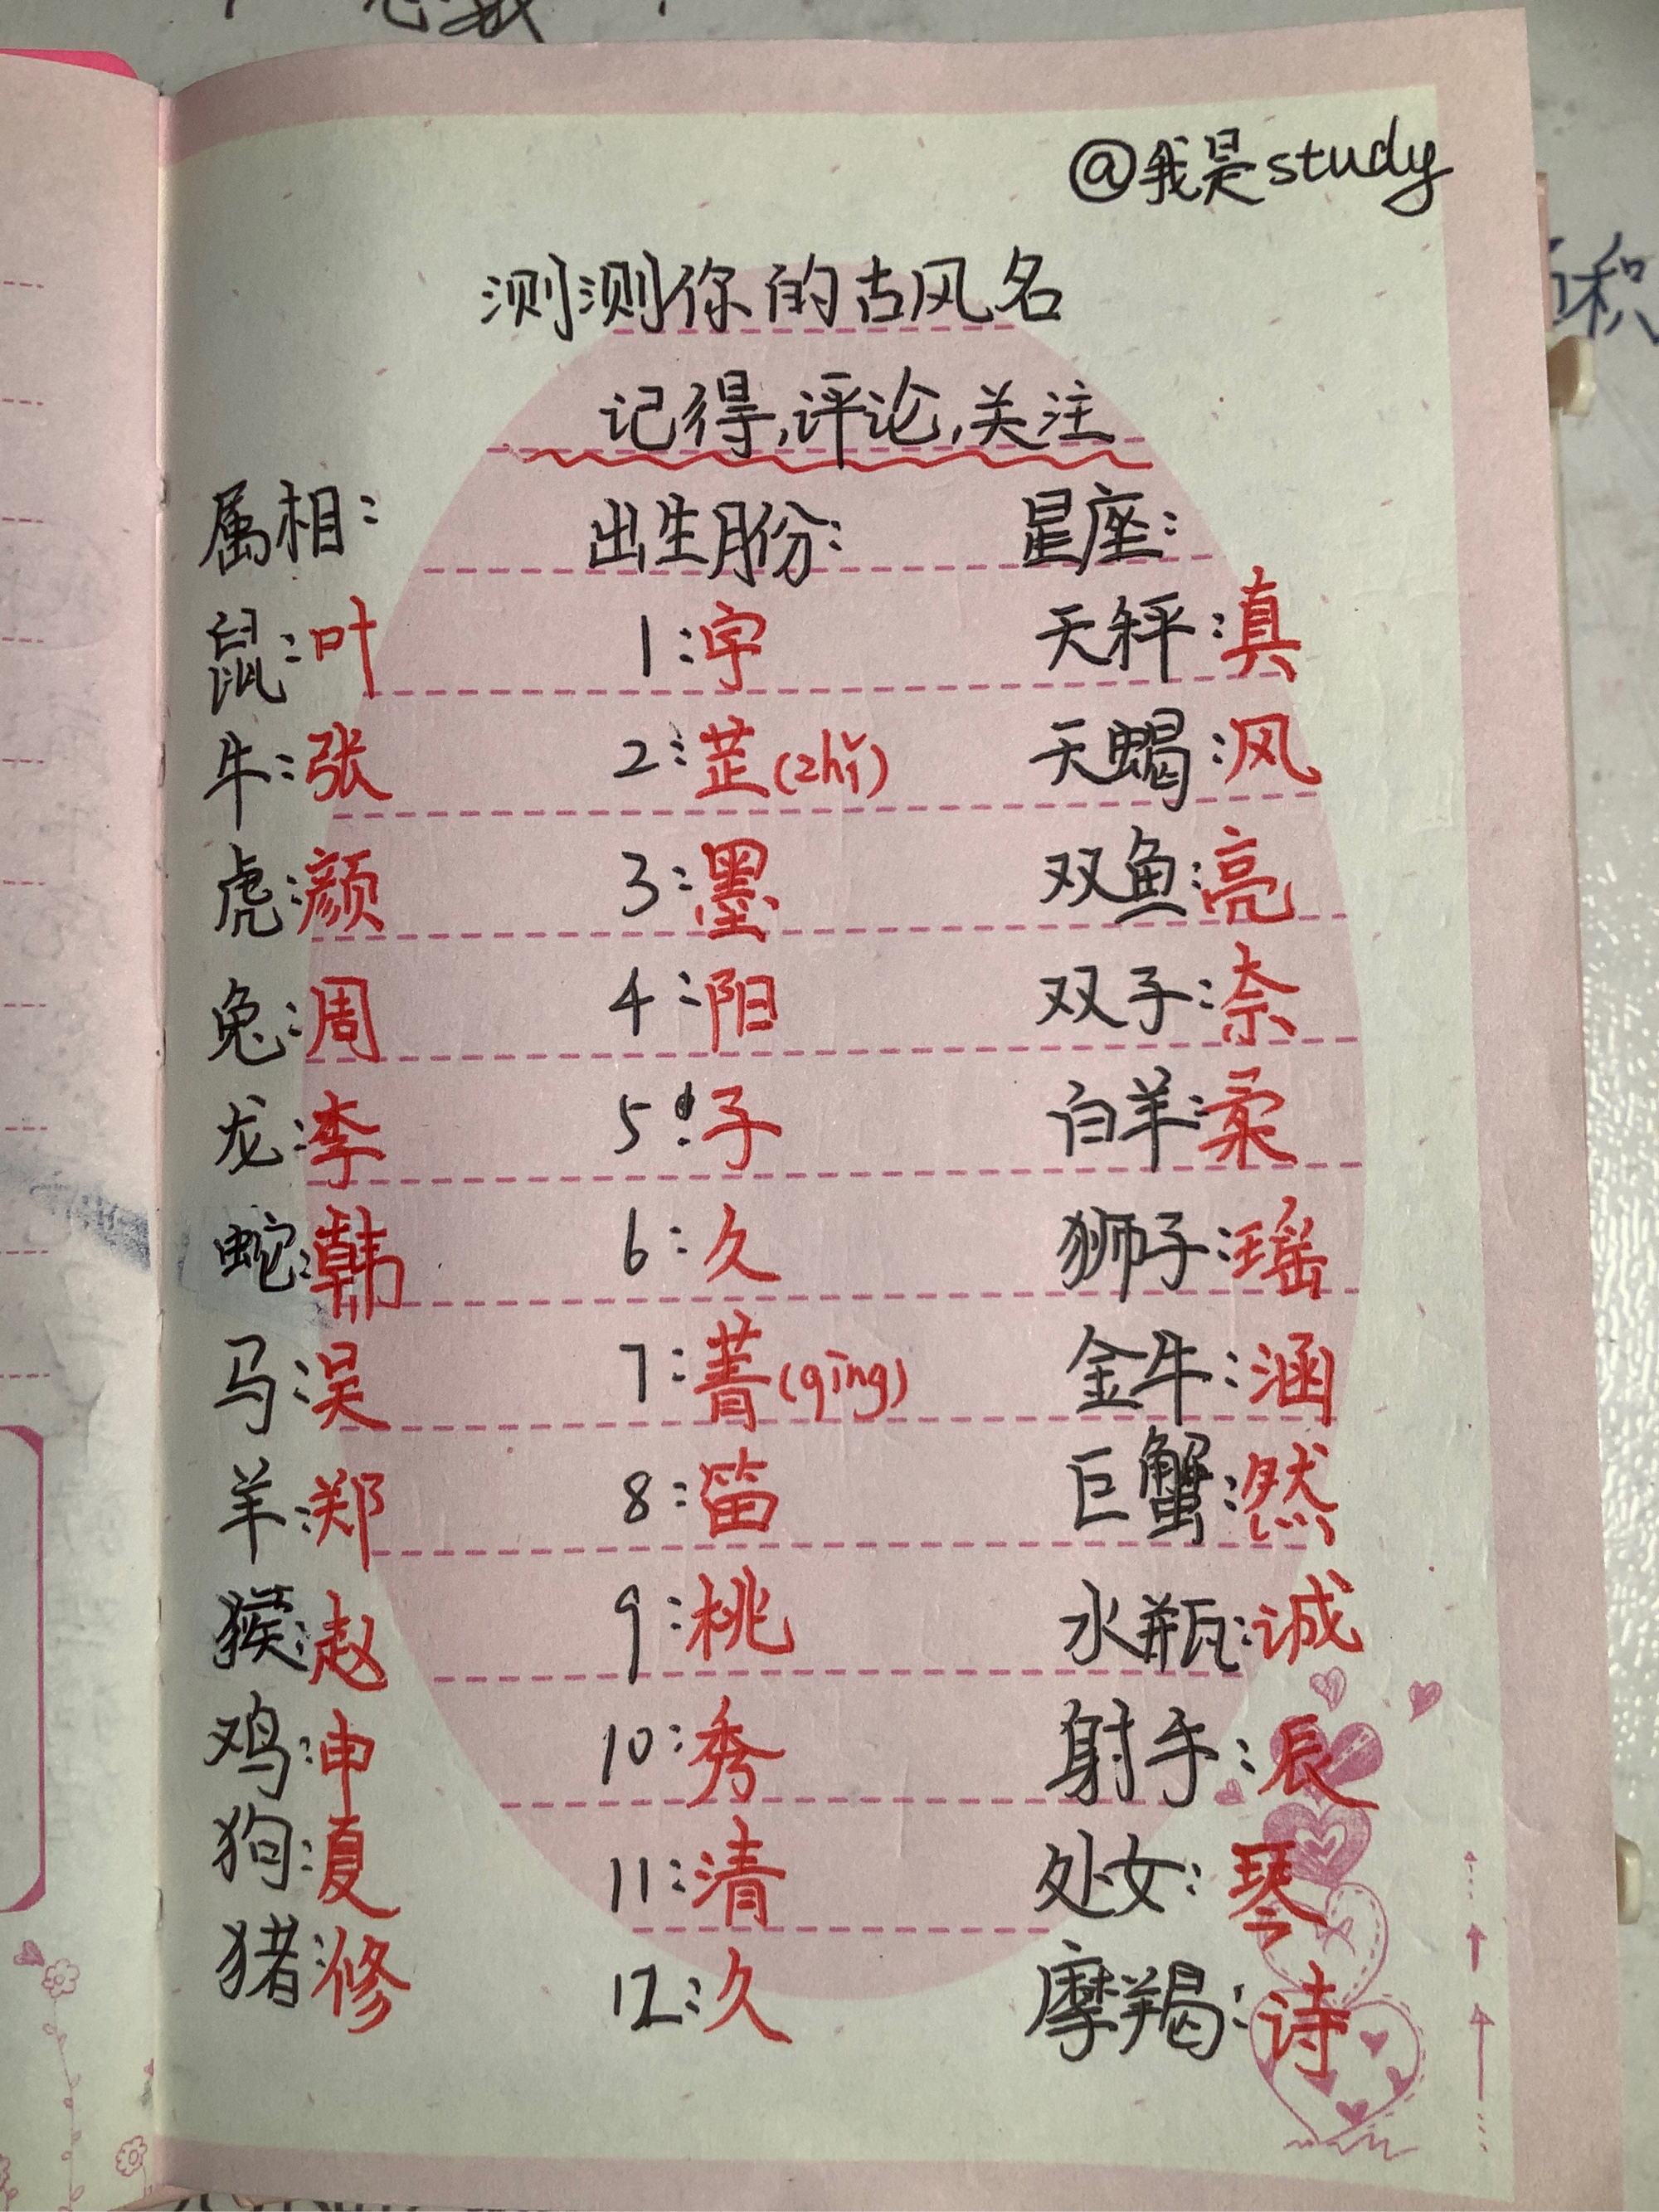 @我是study
测测你的古风名
记得,评论,关注
属相: 出生月份: 星座:
鼠:叶 1:宇 天秤:真
牛:张 2:芷(zhǐ) 天蝎:风
虎:颜 3:墨 双鱼:亮
兔:周 4:阳 双子:奈
龙:李 5:子 白羊:柔
蛇:韩 6:久 狮子:瑶
马:吴 7:菁(qīng) 金牛:涵
羊:郑 8:笛 巨蟹:然
猴:赵 9:桃 水瓶:诚
鸡:申 10:秀 射手:辰
狗:夏 11:清 处女:琴
猪:修 12:久 摩羯:诗
积